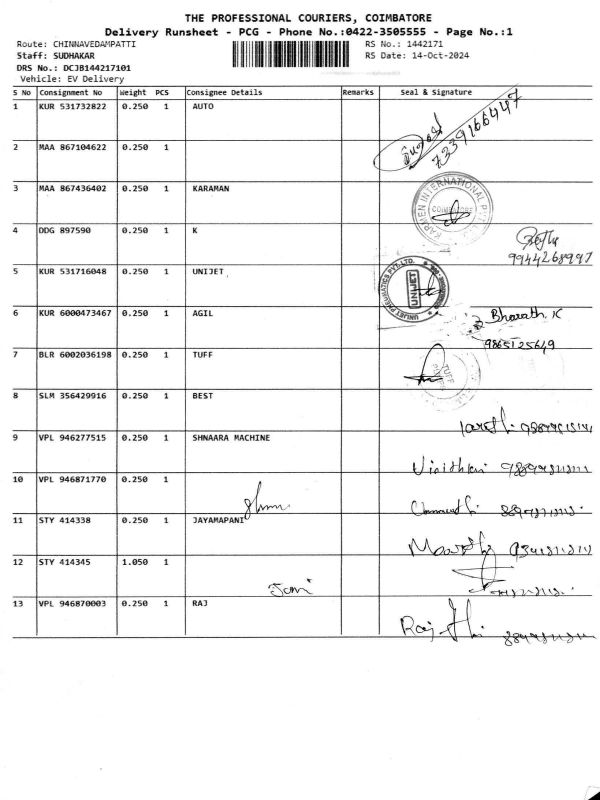 THE PROFESSIONAL COURIERS, COIMBATORE
Delivery Runsheet - PCG - Phone No.:0422-3505555 - Page No.:1
Route: CHINNAVEDAMPATTI RS No.: 1442171
Staff: SUDHAKAR RS Date: 14-Oct-2024
DRS No.: DCJB144217101
Vehicle: EV Delivery
S No Consignment No Weight PCS Consignee Details Remarks Seal & Signature
1 KUR 531732822 0.250 1 AUTO
7339166447
2 MAA 867104622 0.250 1
3 MAA 867436402 0.250 1 KARAMAN
KARMEN INTERNATIONAL PVT. LTD.
COIMBATORE
4 DDG 897590 0.250 1 K
9944268997
5 KUR 531716048 0.250 1 UNIJET
UNIJET PNEUMATICS PVT. LTD.
UNIJET
6 KUR 6000473467 0.250 1 AGIL
Bharath. K
7 BLR 6002036198 0.250 1 TUFF
TUFF
8 SLM 356429916 0.250 1 BEST
9 VPL 946277515 0.250 1 SHNAARA MACHINE
10 VPL 946871770 0.250 1
11 STY 414338 0.250 1 JAYAMAPANI
12 STY 414345 1.050 1
13 VPL 946870003 0.250 1 RAJ